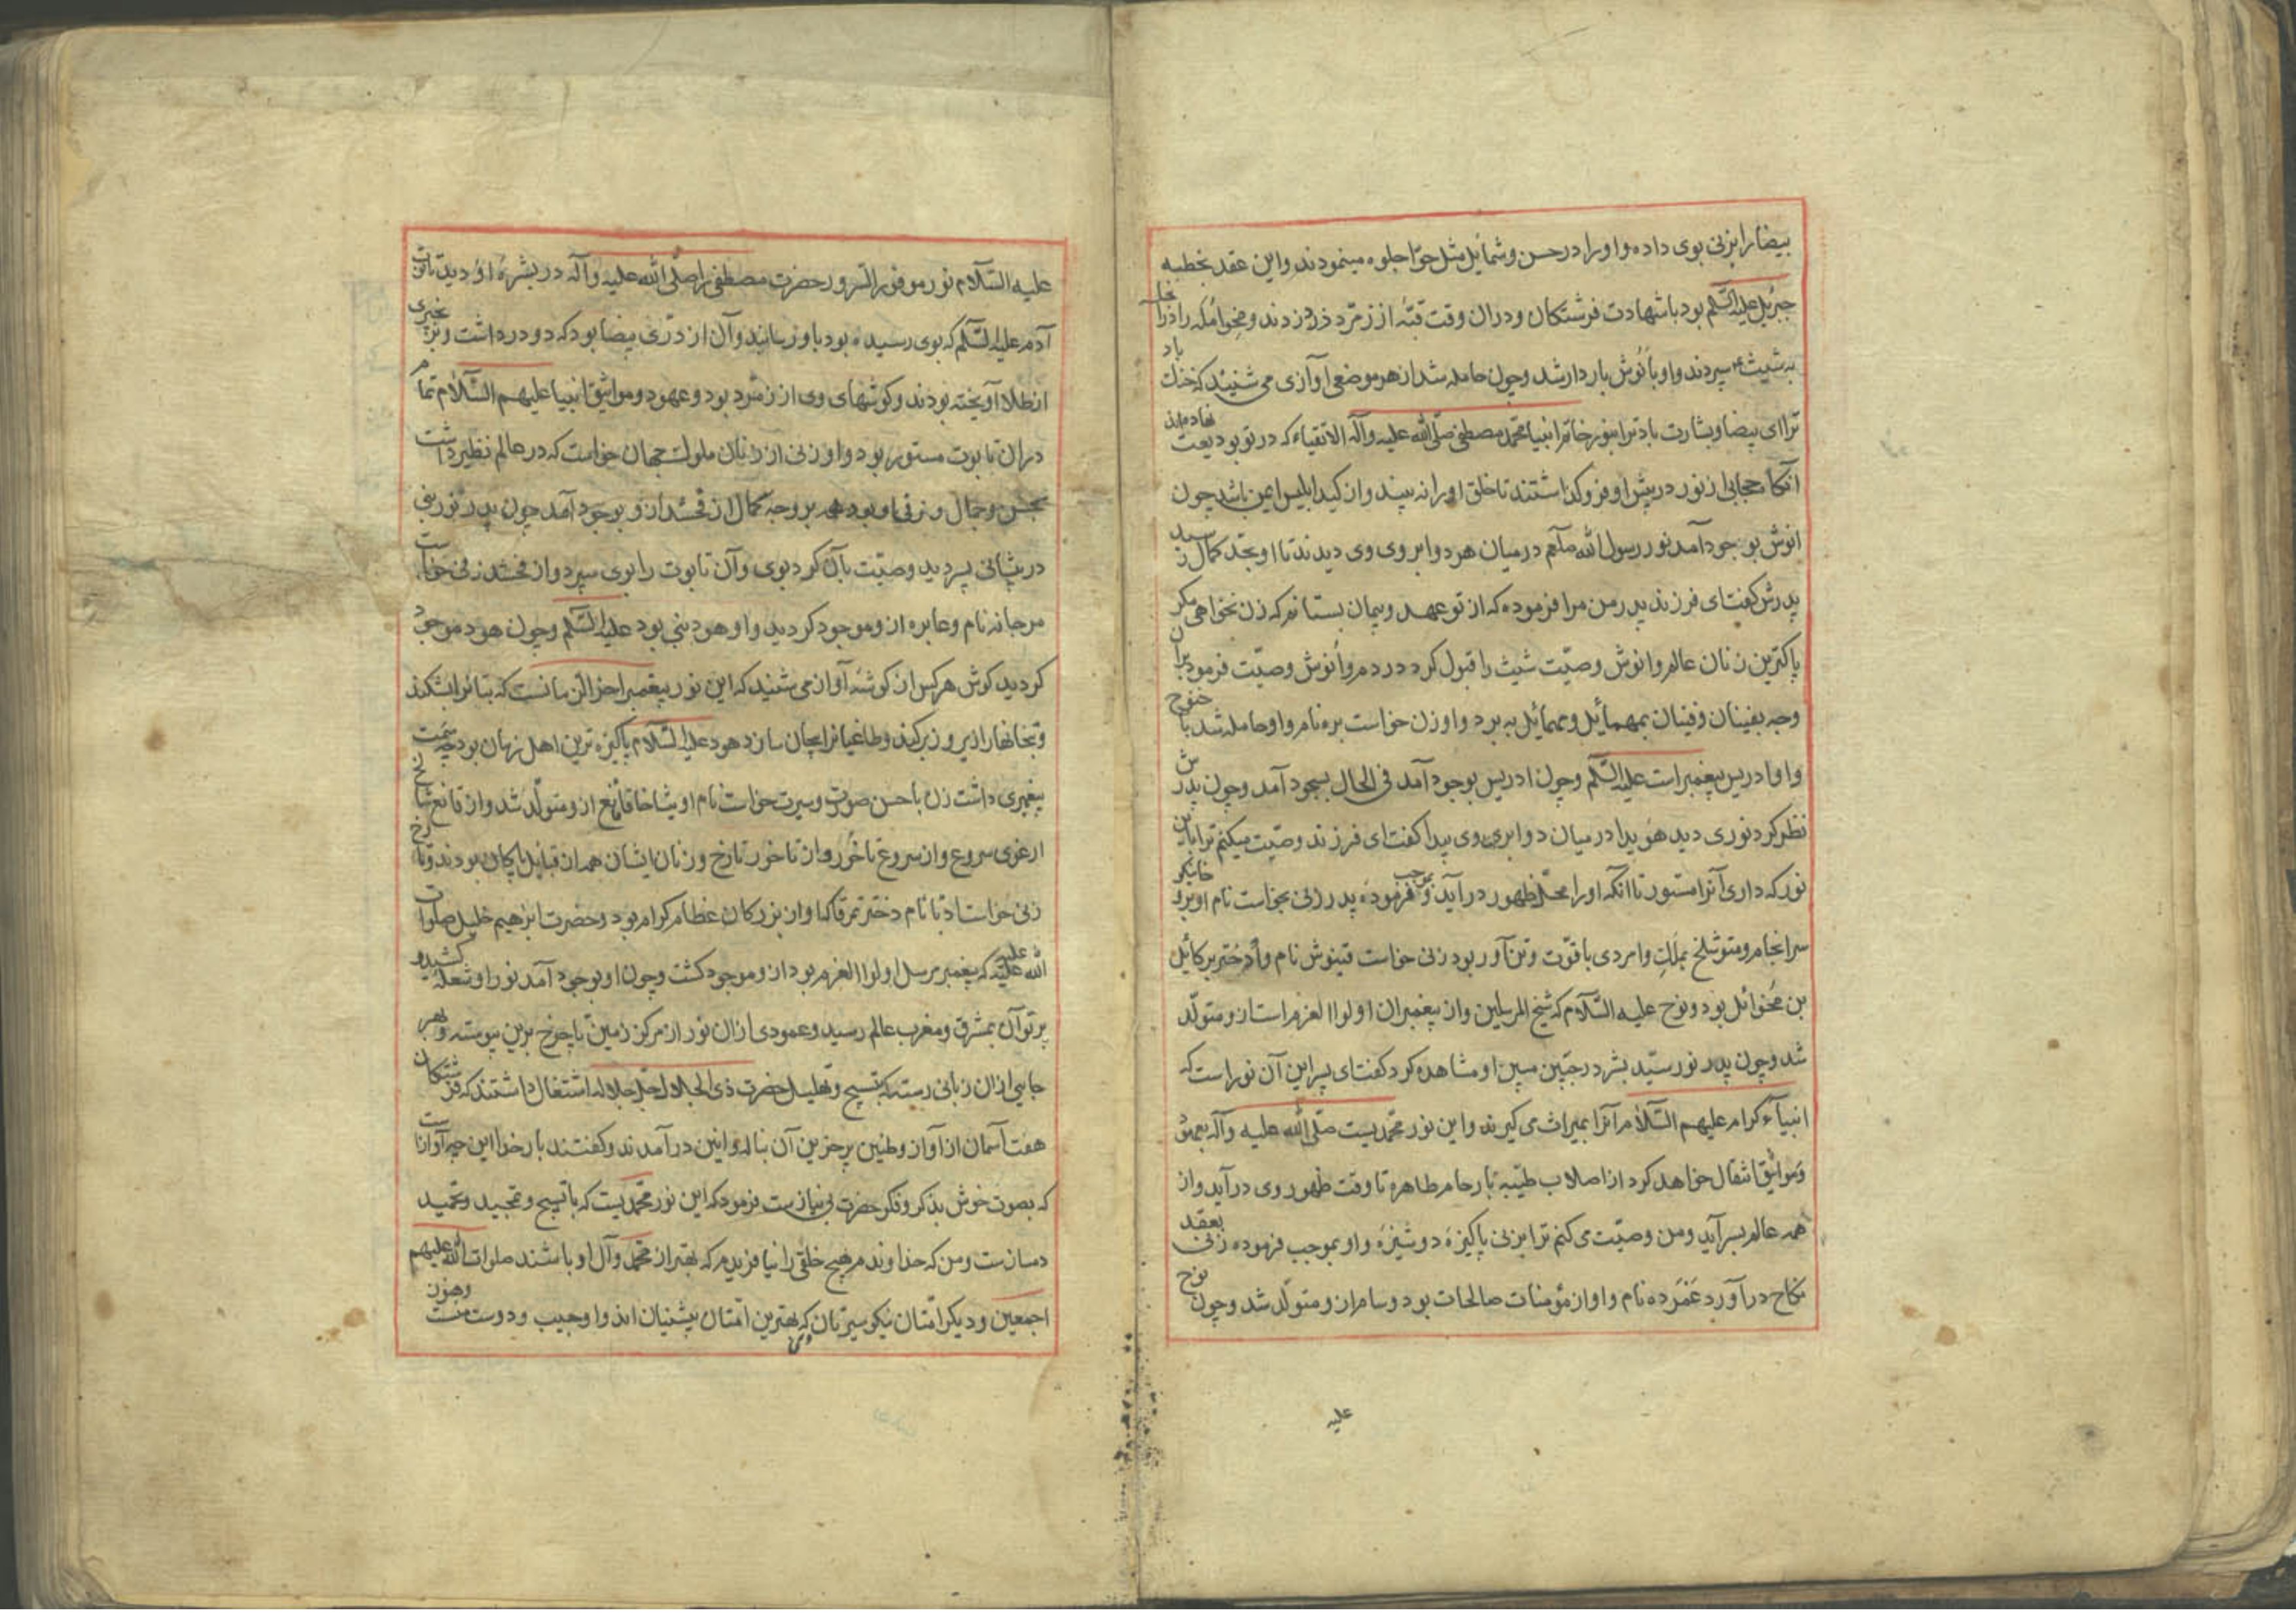 بیضا را بزنی بوی داده و او را در حسن و شمایل مثل حوّا جلوه مینمودند و این عقد بخطبه
جبرئیل علیه السّلم بود باشهادت فرشتکان و دران وقت قبّه از زمرّد زدند
به شیث سپردند و او بانوش باردار شد و چون حامله شد از هر موضعی آوازی می شنید که خنک باد
ترا ای بیضا و بشارت باد ترا بنور خاتم انبیا محمّد مصطفی صلّی الله علیه وآله الاتقیاء که در تو بودیعت نهادهاند
آنکاه حجابی از نور در پیش او فرو کذاشتند تا خلق او را نه بیند و از کید ابلیس ایمن باشد چون
انوش بوجود آمد نور رسول الله صلّعم درمیان هر دو ابروی وی دیدند تا او بحدّ کمال رسید
پدرش کفت ای فرزند پدر من مرا فرموده که از تو عهد و پیمان بستانم که زن نخواهی مکر
پاکترین زنان عالم و انوش وصیّت شیث را قبول کرد در دم و انوش وصیّت فرمود بران
وجه بقینان و قینان بمهمائیل و مهمائیل به برد و او زن خواست بره نام و او حامله شد با خنوخ
و او ادریس پیغمبر است علیه السّلم و چون ادریس بوجود آمد فی الحال بسجود آمد و چون پدرش
نظر کرد نوری دید هویدا در میان دو ابروی وی پیدا کفت ای فرزند وصیّت میکنم ترا باین
نور که داری آنرا مستور تا انکه او را محلّ ظهور در آید و بموجب فرموده پدر زنی بخواست نام او برو خانیکو
سرانجام و متوشلخ بملّت و امردی باقوّت و تن آور بود زنی خواست قینوش نام و او دختر برکائیل
بن مخوائل بود و نوح علیه السّلام که شیخ المرسلین و از پیغمبران اولوا العزم است ازو متولّد
شد و چون پدر نور سیّد بشر در جبین مبین او مشاهده کرد کفت ای پسر این آن نور است که
انبیآء کرام علیهم السّلام آنرا بمیراث می کیرند و این نور محمّدیست صلّی الله علیه وآله بعهود
و مواثیق انتقال خواهد کرد از اصلاب طیّبه بارحام طاهره تا وقت ظهور وی در آید و از
همه عالم بسر آید و من وصیّت می کنم ترا بزنی پاکیزهٔ دوشیزهٔ و او بموجب فرموده زنی بعقد
نکاح در آورد عمرده نام و او از مؤمنات صالحات بود و سام ازو متولّد شد و چون نوح
علیه
علیه السّلام نور موفور السّرور حضرت مصطفی را صلّی الله علیه وآله در بشرهٔ او دید تابوت
آدم علیه السّلم که بوی رسیده بود باو رسانید و آن از درّی بیضا بود که دو در داشت و زنجیری
از طلا آویخته بودند و کوشهای وی از زمرّد بود و عهود و مواثیق انبیا علیهم السّلام تمام
دران تابوت مستور بود و او زنی از زنان ملوک جهان خواست که در عالم نظیر نداشت
بحسن و جمال و بر وجه کمال ارفخشد ازو بوجود آمد چون پدر نور نبی
در پیشانی پسر دید وصیّت بآن کرد بوی و آن تابوت را بوی سپرد و ارفخشد زنی خواست
مرجانه نام و عابره ازو موجود کردید و او هود نبی بود علیه السّلم و چون هود موجود
کردید کوش هر کس از کوشهٔ آواز می شنید که این نور پیغمبر آخر الزمانست که بتانرا بشکند
و بتخانها را زیر و زبر کند و طاغیانرا بیجان سازد هود علیه السّلام پاکیزه ترین اهل زمان بود چه سمت
پیغمبری داشت زن باحسن صورت و سیرت خواست نام او یشاخا قانع ازو متولّد شد و از قانع شالخ
ارغوی سروع و از سروع تاخور و از تاخور تارخ و زنان ایشان همه از قبایل پاکان بودند و تارخ
زنی خواست ادبا نام دختر نمرقاکا و از بزرکان عظام کرام بود و حضرت ابرٰهیم خلیل صلوات
الله علیه که پیغمبر مرسل اولوا العزم بود ازو موجود کشت و چون او بوجود آمد نور او شعله کشید و
پرتو آن بمشرق و مغرب عالم رسید و عمودی ازان نور از مرکز زمین تا چرخ برین پیوسته و بهر
جایی ازان زبانی رسته که بتسبیح و تهلیل حضرت ذی الجلال جلّ جلاله اشتغال داشتند که فرشتکان
هفت آسمان از آواز و طنین پر حزین آن بناله و انین در آمدند و کفتند بار خدا این چه آوازاست
که بصوت خوش بذکر و فکر حضرت بی نیازست فرمود که این نور محمّدیست که باتسبیح و تمجید و تحمید
دمسازست و من که خداوندم هیچ خلقی را نیافریدم که بهتر از محمّد و آل او باشند صلوات الله علیهم
اجمعین و دیکر امّتان نیکو سیرتان که بهترین امّتان پیشنیان اند و او حبیب و دوست منست